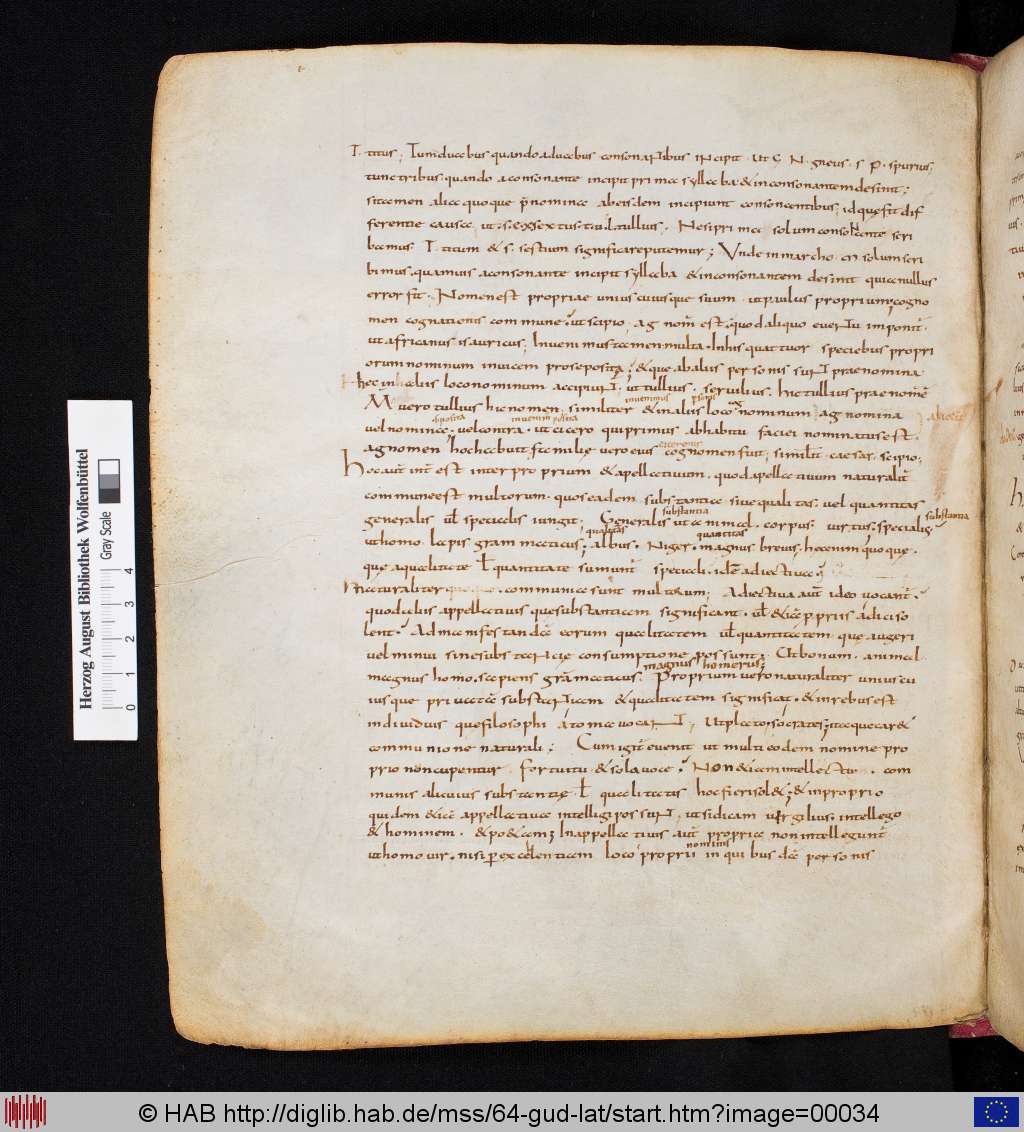 T. titus; Tum duabus quando a duabus consonantibus incipit. ut C N. gneus. s P. spurius;
tunc tribus. quando a consonante incipit prima syllaba & in consonantem desinit;
sic tamen aliae quoque p̄nomina ab eisdem incipiunt consonantibus; id que fit dif
ferentiae causa ut. s. ex sextus. t. u. l. tullius; Ne si prima solum consonante scri
bamus T. titum & s. sestium significare putemur; Unde in marcho. m solum scri
bimus. quamuis a consonante incipit syllaba & in consonantem desinit quia nullus
error fit; Nomen est propriae uniuscuiusque suum. ut paulus proprium; cogno
men cognationis commune. ut scipio; ag nom̄ est. quod aliquo euentu imponit̄.
ut africanus isauricus; Inuenimus tamen multa. In his quattuor speciebus propri
orum nominum inuicem prose posita; & que ab aliis personis sunt praenomina
haec in aliis loco nominum accipiunt; ut tullius. seruilius. hic tullius praenom̄
M uero tullius hic nomen. similiter & in aliis loco nominum agnomina
inuenimus
posita
uel nomine. uel contra. ut cicero qui primus ab habitu faciei nominatus est.
agnomen hoc habuit. familiae uero eius cognomen fuit; similit̄ caesar. scipio;
ciceronis
Hoc aut̄ int̄ est inter proprium & apellatiuum. quod apellatiuum naturalit̄
commune est multorum. quos eadem substantia siue qualitas. uel quantitas
generalis ul̄ specialis iungit; Generalis ut animal. corpus. uirtus; specialis.
substantia
substantia
ut homo. lapis grammaticus; albus. Niger. magnus breuis. haec enim quoque.
qualitas
quantitas
quę a qualitate l̄ quantitate sumunt̄ speciali. id est adiectiua.
Naturaliter communia sunt multorum; Adiectiua aut̄ ideo uocant̄.
quod aliis appellatiuis que substantiam significant. ul̄ & iā p̄priis adici so
lent. Ad manifestandā eorum qualitatem ul̄ quantitatem. quę augeri
uel minui sine substantię consumptione possunt; Ut bonum. animal
magnus homo. sapiens grāmaticus. Proprium uero naturaliter uniuscu
magnus homerus;
iusque priuatā substantiam & qualitatem significat. & in rebus est
indiuiduis que filosophi atoma uocant; ut plato; socrates; itaque car&
communione naturali; Cum igit̄ euenit ut multi eodem nomine pro
prio noncupentur fortuitu & sola uoce. Non & iam intellectu. com
munis alicuius substantię l̄ qualitatis hoc fieri sol&; & in proprio
quidem & iā appellatiua intelligi possunt. ut si dicam uirgilius. intellego
& hominem. & po&am; In appellatiuis aut̄ propria non intellegunt̄
ut homo uir. nisi p excellentiam loco proprii in quibusdā personis
nominis
Herzog August Bibliothek Wolfenbüttel
Gray Scale
0 1 2 3 4
© HAB http://diglib.hab.de/mss/64-gud-lat/start.htm?image=00034